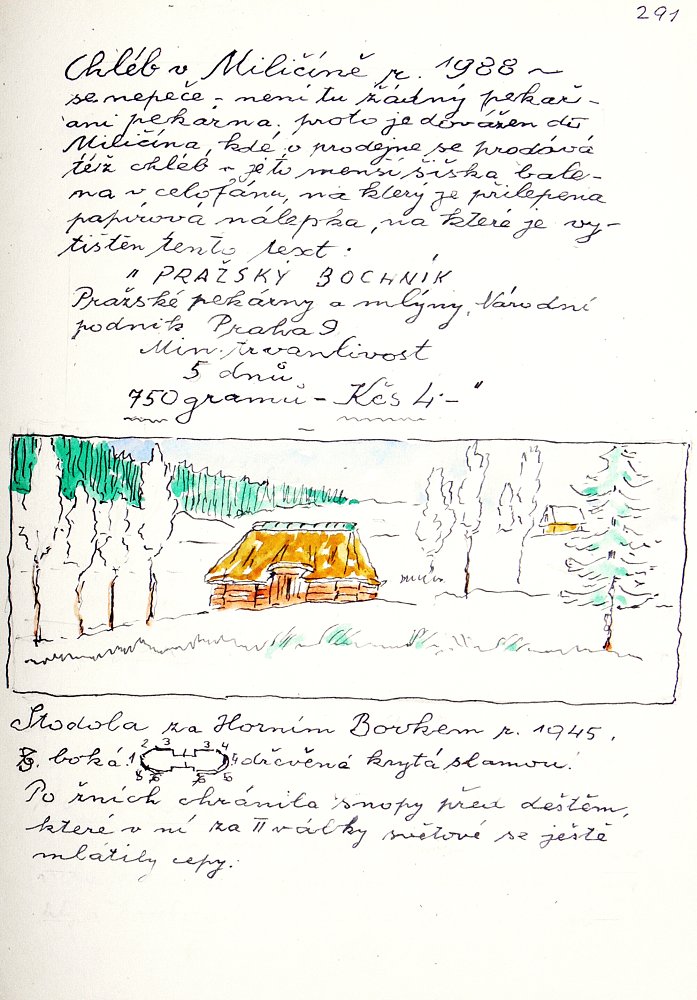 291
Chléb v Miličíně r. 1988 ~
se nepeče - není tu žádný pekař -
ani pekárna. proto je dovážen do
Miličína, kde v prodejne se prodává
též chléb - je to menší šiška bale-
na v celofánu, na který je přilepena
papírová nálepka, na které je vy-
tištěn tento text:
" PRAŽSKÝ BOCHNÍK
Pražské pekárny a mlýny, Národní
podnik Praha 9
Min. trvanlivost
5 dnů
750 gramů - Kčs 4.- "
Stodola za Horním Borkem r. 1945.
boká 1 2 3 3 4 dřevěná krytá slamou.
Po žních chránila snopy před deštěm,
které v ní za II války světové se ještě
mlátily cepy.